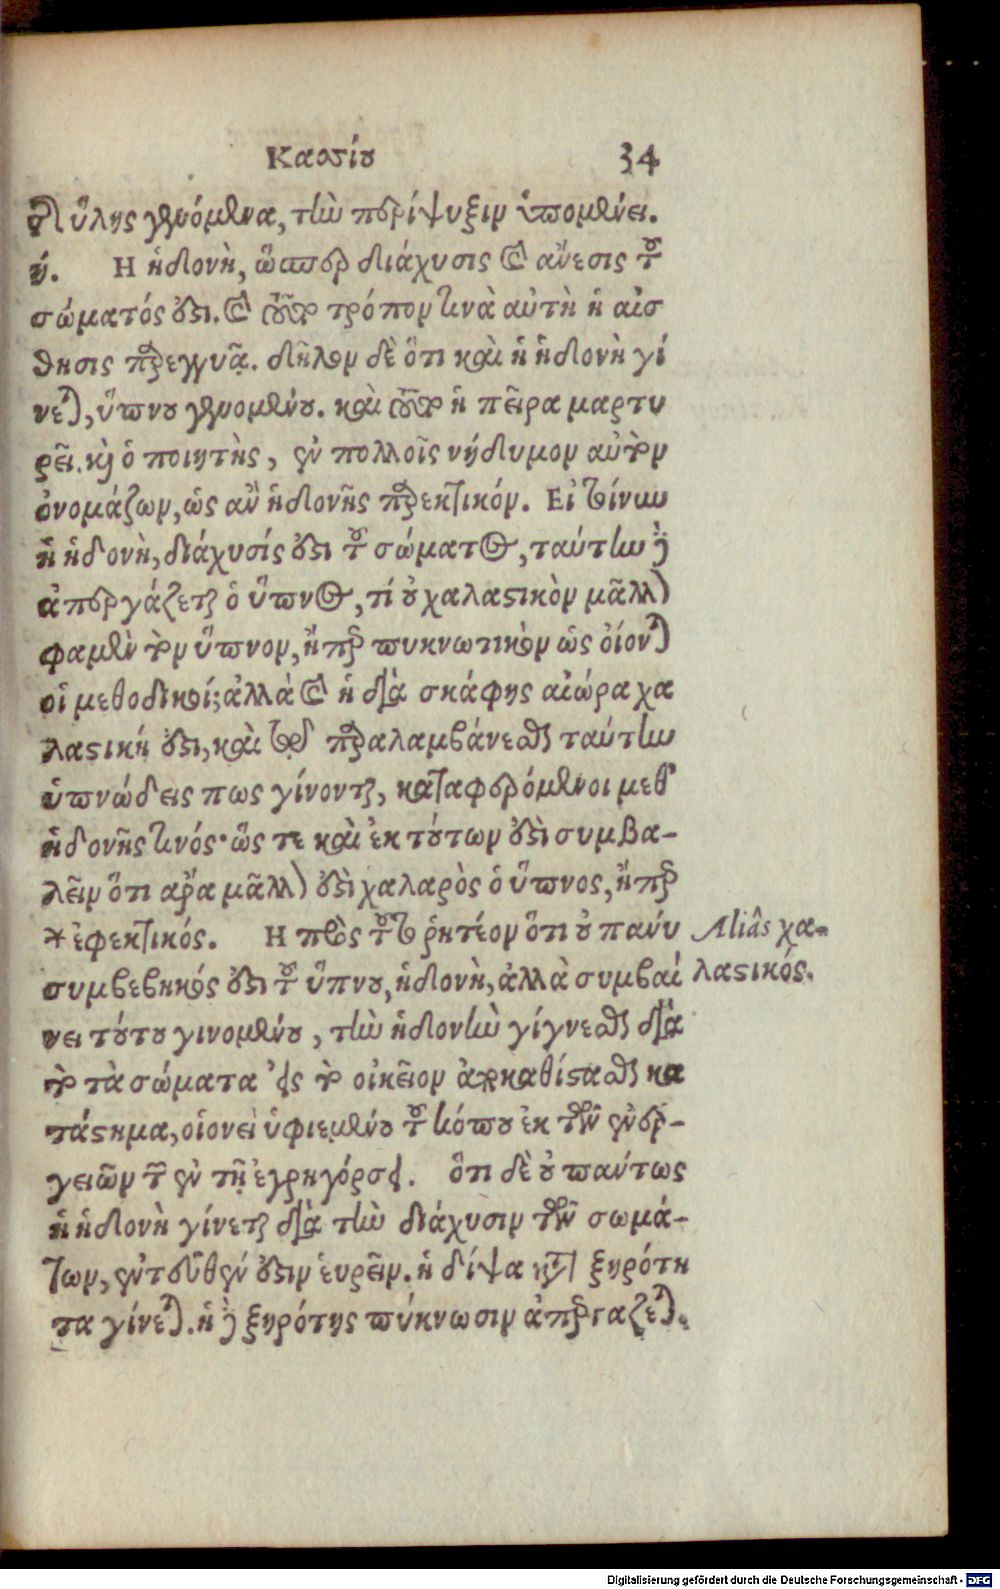 Κασσίου 34
τῆς ὕλης γενόμενα, τὴν περίψυξιν ὑπομένει.
η. Η ἡδονὴ, ὥσπερ διάχυσις καὶ ἄνεσις τοῦ
σώματός ἐστι. καὶ τοῦτον τρόπον τινὰ αὐτὴ ἡ αἴσ
θησις παρεγγυᾷ. δῆλον δὲ ὅτι καὶ ἡ ἡδονὴ γί
νεται, ὕπνου γενομένου. καὶ τοῦτο ἡ πεῖρα μαρτυ
ρεῖ. καὶ ὁ ποιητὴς, ἐν πολλοῖς νήδυμον αὐτὸν
ὀνομάζων, ὡς ἂν ἡδονῆς παρεκτικόν. Εἰ τοίνυν
ἡ ἡδονὴ, διάχυσίς ἐστι τοῦ σώματος, ταύτην δὲ
ἀπεργάζεται ὁ ὕπνος, τί οὐ χαλαστικὸν μᾶλλον
φαμὲν τὸν ὕπνον, ἤπερ πυκνωτικὸν ὡς οἴονται
οἱ μεθοδικοί; ἀλλὰ καὶ ἡ διὰ σκάφης αἰώρα χα
λαστική ἐστι, καὶ παραλαμβάνεσθαι ταύτην
ὑπνώδεις πως γίνονται, καταφερόμενοι μεθ'
ἡδονῆς τινός· ὥς τε καὶ ἐκ τούτων ἐστὶ συμβα-
λεῖν ὅτι ἄρα μᾶλλον ἐστὶ χαλαρὸς ὁ ὕπνος, ἤπερ
*ἐφεκτικός. Η πρὸς τοῦτο ῥητέον ὅτι οὐ πάνυ
συμβεβηκός ἐστι τοῦ ὕπνου, ἡδονὴ, ἀλλὰ συμβαί
νει τούτου γινομένου, τὴν ἡδονὴν γίγνεσθαι διὰ
τὸ τὰ σώματα εἰς τὸ οἰκεῖον ἀποκαθίστασθαι κα
τάστημα, οἱονεὶ ὑφιεμένου τοῦ κόπου ἐκ τῶν ἐνερ-
γειῶν τῶν ἐν τῇ ἐγρηγόρσει. ὅτι δὲ οὐ πάντως
ἡ ἡδονὴ γίνεται διὰ τὴν διάχυσιν τῶν σωμά-
των, ἐντεῦθέν ἐστιν εὑρεῖν. ἡ δίψα κατὰ ξηρότη
τα γίνεται. ἡ δὲ ξηρότης πύκνωσιν ἀπεργάζεται.
Aliâs χα-
λαστικός.
Digitalisierung gefördert durch die Deutsche Forschungsgemeinschaft - DFG